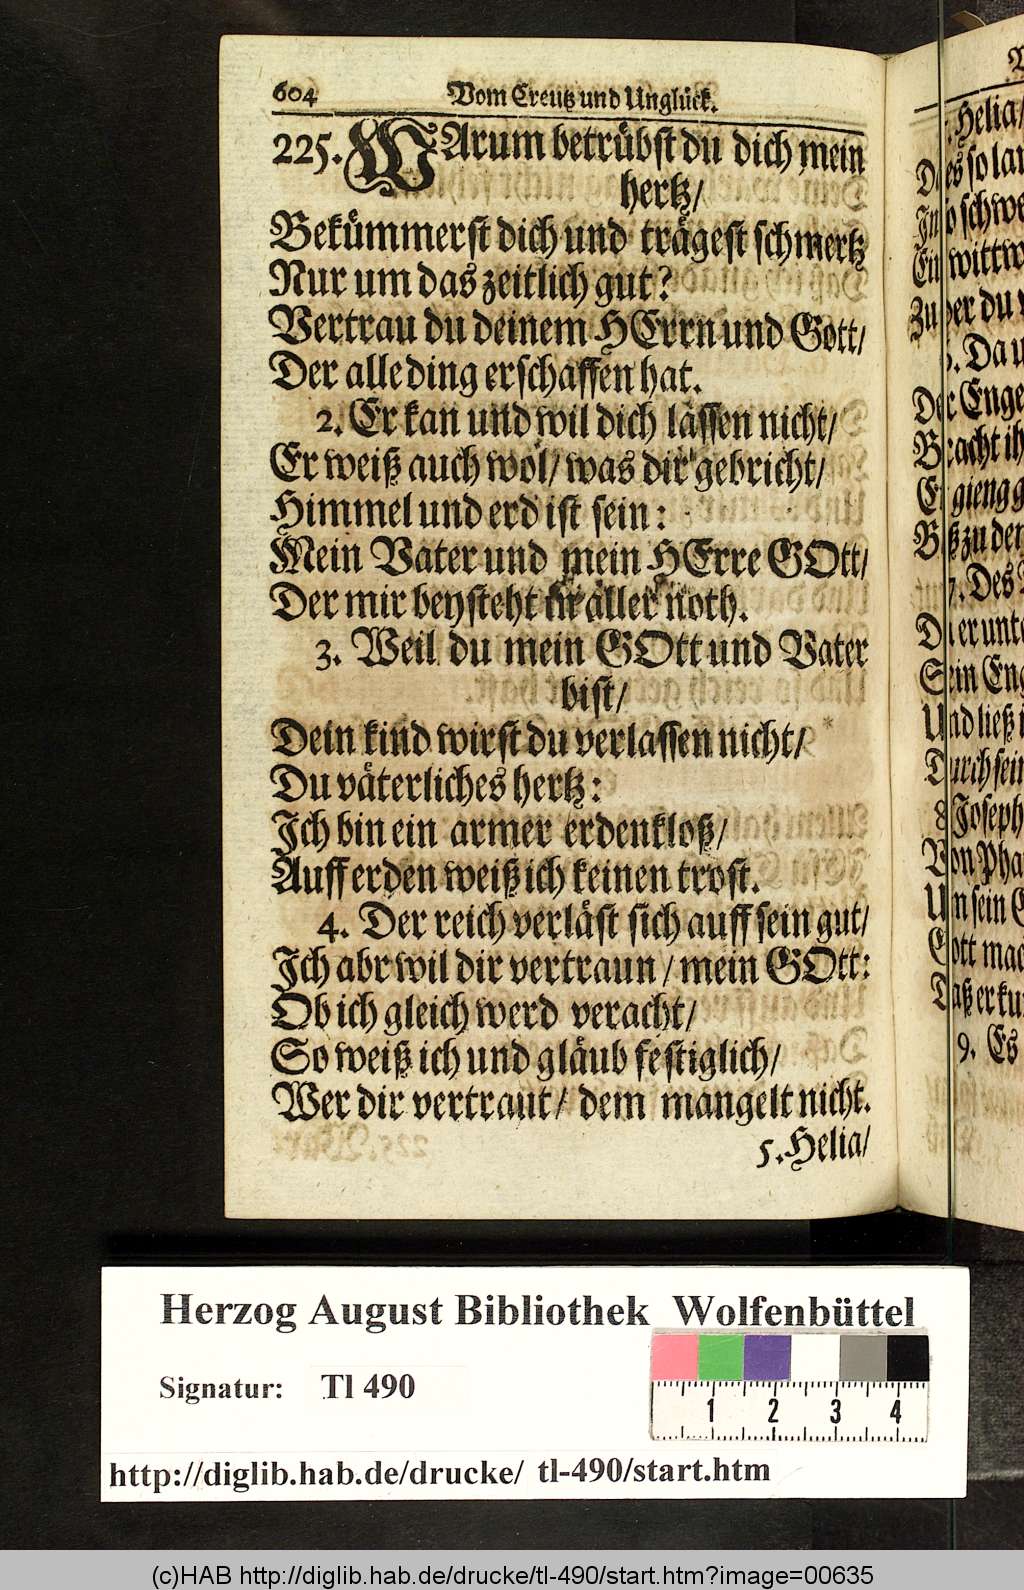 604 Vom Creutz und Unglück.
225. WArum betrübst du dich mein
hertz/
Bekümmerst dich und trägest schmertz
Nur um das zeitlich gut?
Vertrau du deinem HErrn und Gott/
Der alle ding erschaffen hat.
2. Er kan und wil dich lassen nicht/
Er weiß auch wol/ was dir gebricht/
Himmel und erd ist sein:
Mein Vater und mein HErre GOtt/
Der mir beysteht in aller noth.
3. Weil du mein GOtt und Vater
bist/
Dein kind wirst du verlassen nicht/
Du väterliches hertz:
Ich bin ein armer erdenkloß/
Auff erden weiß ich keinen trost.
4. Der reich verläst sich auff sein gut/
Ich abr wil dir vertraun/ mein GOtt:
Ob ich gleich werd veracht/
So weiß ich und gläub festiglich/
Wer dir vertraut/ dem mangelt nicht.
5. Helia/
Helia/
so lan
so schwe
wittw
der du
Da u
Enge
acht ih
gieng g
zu der
Des
er unt
Sein Eng
Und ließ
Durch sein
8. Joseph
Von Pha
Um sein
Gott mac
Daß er ku
9. Es
Herzog August Bibliothek Wolfenbüttel
Signatur: Tl 490
1 2 3 4
http://diglib.hab.de/drucke/ tl-490/start.htm
(c)HAB http://diglib.hab.de/drucke/tl-490/start.htm?image=00635